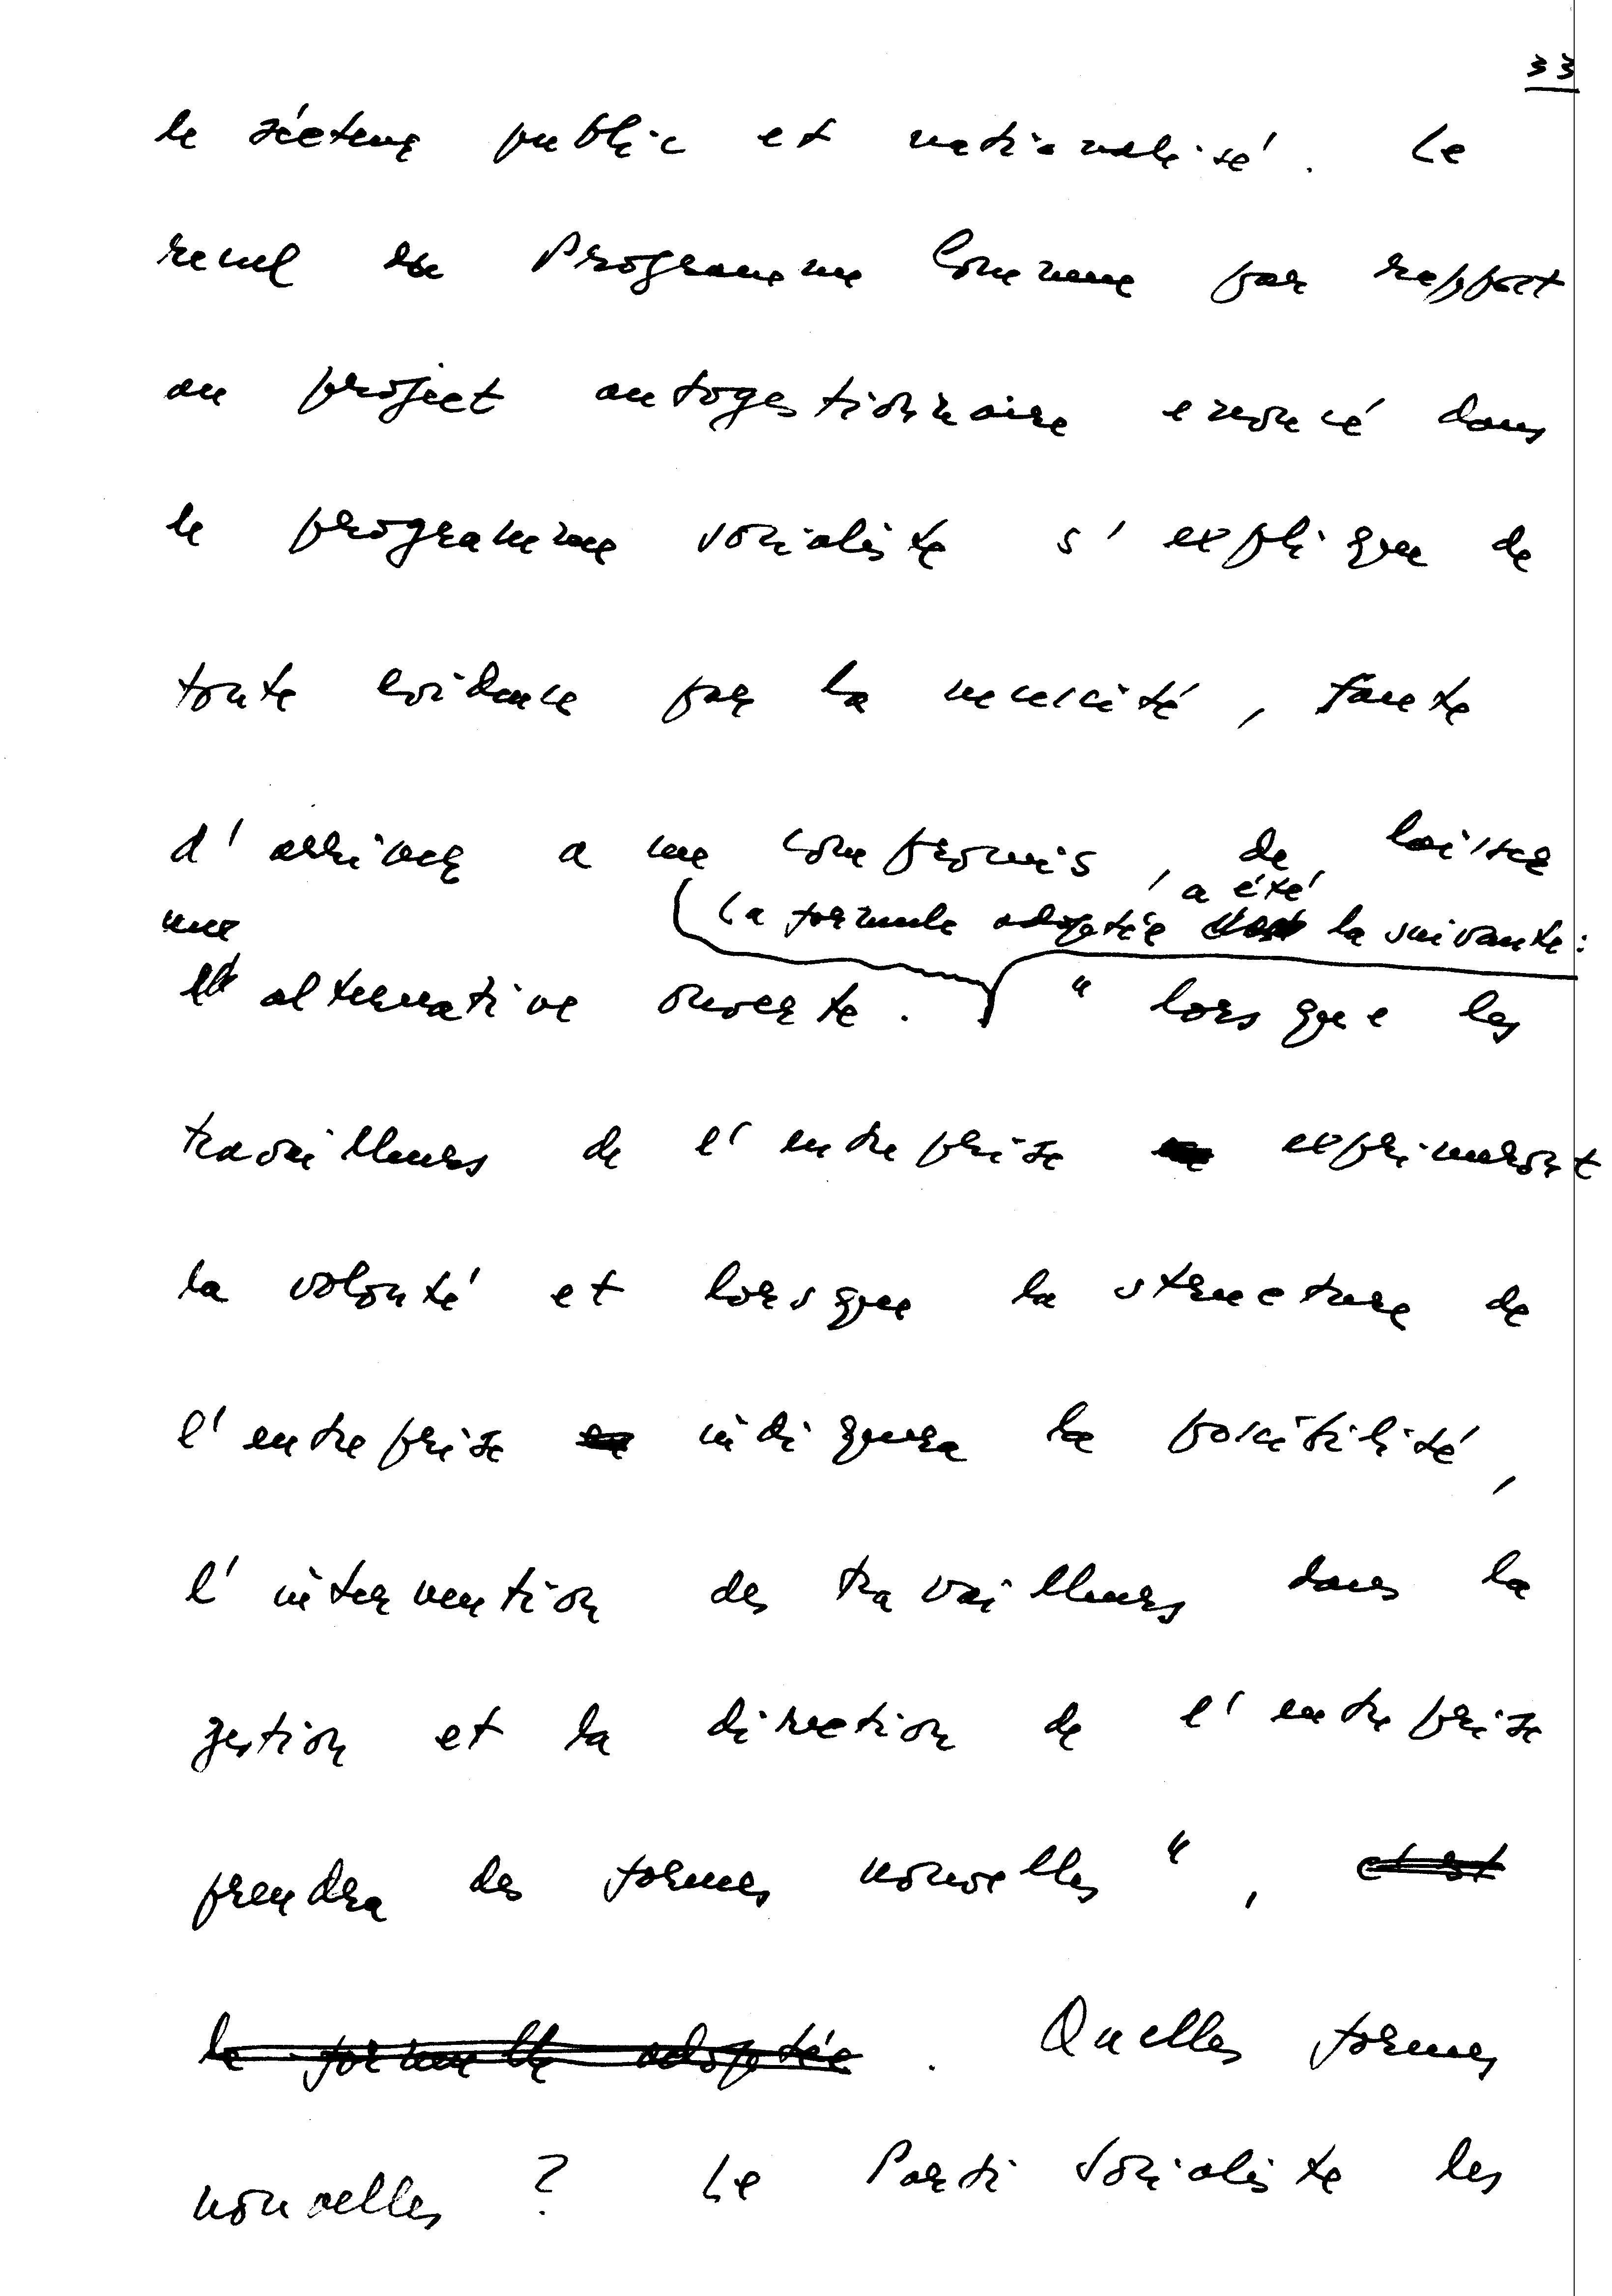 33
le sécteur public et nationalisé. Le
recul du Programme Commun par rapport
au project autogestionnaire enoncé dans
le programme socialiste s'explique de
toute evidence par la necessité, faute
d'arriver a un compromis, de laisser
une
a été
(la formule adoptée la suivante:
alternative ouverte. "lorsque les
travailleurs de l'entreprise exprimeront
la volonté et lorsque la structure de
l'entreprise indiquera la possibilité,
l'intervention des travailleurs dans la
gestion et la direction de l'entreprise
prendra des formes nouvelles", et est
la formulle adoptée. Quelles formes
nouvelles? Le Parti Socialiste les